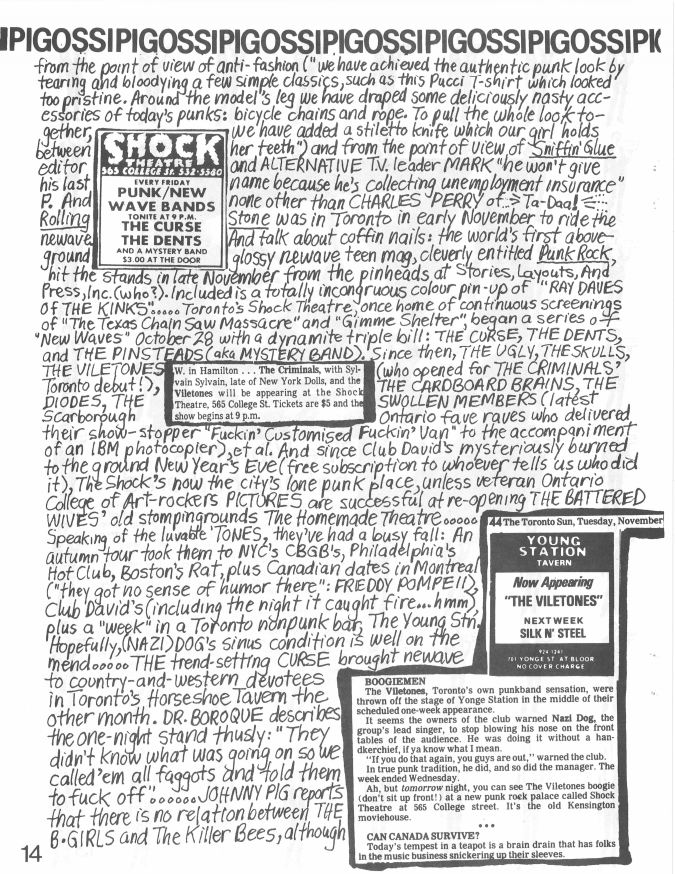 PIGOSSIPIGOSSIPIGOSSIPIGOSSIPIGOSSIPIGOSSIPI
from the point of view of anti-fashion ("we have achieved the authentic punk look by
tearing and bloodying a few simple classics, such as this Pucci T-shirt which looked
too pristine. Around the model's leg we have draped some deliciously nasty acc-
essories of today's punks: bicycle chains and rope. To pull the whole look to-
gether, we have added a stiletto knife which our girl holds
between her teeth") and from the point of view of Sniffin' Glue
editor and ALTERNATIVE T.V. leader MARK "he won't give
his last name because he's collecting unemployment insurance"
P. And none other than CHARLES PERRY of... Ta-Daa!
Rolling Stone was in Toronto in early November to ride the
newave. And talk about coffin nails: the world's first above-
ground glossy newave teen mag, cleverly entitled Punk Rock,
hit the stands in late November from the pinheads at Stories, Layouts, And
Press, Inc. (who?). Included is a totally incongruous colour pin-up of "RAY DAVES
OF THE KINKS"..... Toronto's Shock Theatre, once home of continuous screenings
of "The Texas Chain Saw Massacre" and "Gimme Shelter", began a series of
"New Waves" October 28 with a dynamite triple bill: THE CURSE, THE DENTS,
and THE PINSTEADS (aka MYSTERY BAND). Since then, THE UGLY, THE SKULLS,
THE VILETONES (who opened for THE CRIMINALS'
Toronto debut!), THE CARDBOARD BRAINS, THE
DIODES, THE SWOLLEN MEMBERS (latest
Scarborough Ontario fave raves who delivered
their show-stopper "Fuckin' Customised Fuckin' Van" to the accompaniment
of an IBM photocopier), et al. And since Club David's mysteriously burned
to the ground New Year's Eve (free subscription to whoever tells us who did
it), The Shock's now the city's lone punk place, unless veteran Ontario
College of Art-rockers PICTURES are successful at re-opening THE BATTERED
WIVES' old stompingrounds The Homemade Theatre.....
Speaking of the luvable 'TONES, they've had a busy fall: An
autumn tour took them to NYC's CBGB's, Philadelphia's
Hot Club, Boston's Rat, plus Canadian dates in Montreal
("they got no sense of humor there": FREDDY POMPEII),
Club David's (including the night it caught fire...hmm),
plus a "week" in a Toronto nonpunk bar, The Young Stn.
Hopefully, (NAZI) DOG's sinus condition is well on the
mend..... THE trend-setting CURSE brought newave
to country-and-western devotees
in Toronto's Horseshoe Tavern the
other month. DR. BOROQUE describes
the one-night stand thusly: "They
didn't know what was going on so we
called 'em all faggots and told them
to fuck off"...... JOHNNY PIG reports
that there is no relation between THE
B·GIRLS and The Killer Bees, although
14
SHOCK
THEATRE
565 COLLEGE ST. 532-5560
EVERY FRIDAY
PUNK/NEW
WAVE BANDS
TONITE AT 9 P.M.
THE CURSE
THE DENTS
AND A MYSTERY BAND
$3.00 AT THE DOOR
W. in Hamilton . . . The Criminals, with Syl-
vain Sylvain, late of New York Dolls, and the
Viletones will be appearing at the Shock
Theatre, 565 College St. Tickets are $5 and the
show begins at 9 p.m.
44 The Toronto Sun, Tuesday, November
YOUNG
STATION
TAVERN
Now Appearing
"THE VILETONES"
NEXT WEEK
SILK N' STEEL
924 1241
701 YONGE ST AT BLOOR
NO COVER CHARGE
BOOGIEMEN
The Viletones, Toronto's own punkband sensation, were
thrown off the stage of Yonge Station in the middle of their
scheduled one-week appearance.
It seems the owners of the club warned Nazi Dog, the
group's lead singer, to stop blowing his nose on the front
tables of the audience. He was doing it without a han-
dkerchief, if ya know what I mean.
"If you do that again, you guys are out," warned the club.
In true punk tradition, he did, and so did the manager. The
week ended Wednesday.
Ah, but tomorrow night, you can see The Viletones boogie
(don't sit up front!) at a new punk rock palace called Shock
Theatre at 565 College street. It's the old Kensington
moviehouse.
• • •
CAN CANADA SURVIVE?
Today's tempest in a teapot is a brain drain that has folks
in the music business snickering up their sleeves.